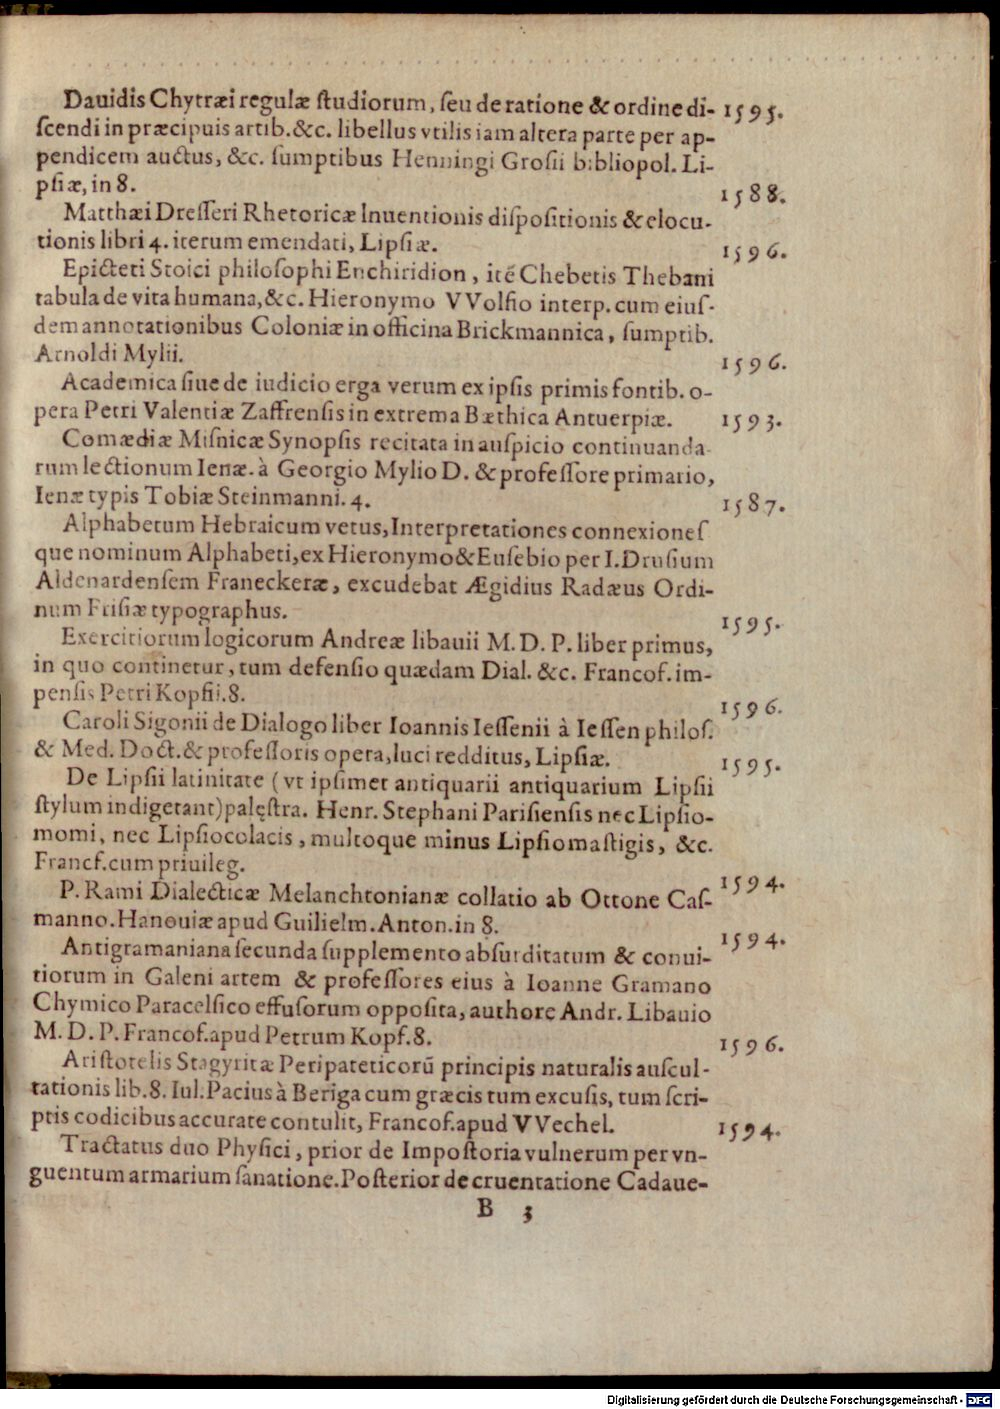 Dauidis Chytræi regulæ ſtudiorum, ſeu de ratione & ordine di- 1595.
ſcendi in præcipuis artib.&c. libellus vtilis iam altera parte per ap-
pendicem auctus, &c. ſumptibus Henningi Groſii bibliopol. Li-
pſiæ, in 8. 1588.
Matthæi Dreſſeri Rhetoricæ Inuentionis diſpoſitionis & elocu-
tionis libri 4. iterum emendati, Lipſiæ. 1596.
Epicteti Stoici philoſophi Enchiridion, itẽ Chebetis Thebani
tabula de vita humana, &c. Hieronymo VVolfio interp. cum eiuſ-
dem annotationibus Coloniæ in officina Brickmannica, ſumptib.
Arnoldi Mylii. 1596.
Academica ſiue de iudicio erga verum ex ipſis primis fontib. o-
pera Petri Valentiæ Zaffrenſis in extrema Bæthica Antuerpiæ. 1593.
Comædiæ Miſnicæ Synopſis recitata in auſpicio continuanda-
rum lectionum Ienæ. à Georgio Mylio D. & profeſſore primario,
Ienæ typis Tobiæ Steinmanni. 4. 1587.
Alphabetum Hebraicum vetus, Interpretationes connexioneſ
que nominum Alphabeti, ex Hieronymo & Euſebio per I. Druſium
Aldenardenſem Franeckeræ, excudebat Ægidius Radæus Ordi-
num Friſiæ typographus. 1595.
Exercitiorum logicorum Andreæ libauii M. D. P. liber primus,
in quo continetur, tum defenſio quædam Dial. &c. Francof. im-
penſis Petri Kopfii. 8. 1596.
Caroli Sigonii de Dialogo liber Ioannis Ieſſenii à Ieſſen philoſ.
& Med. Doct. & profeſſoris opera, luci redditus, Lipſiæ. 1595.
De Lipſii latinitate (vt ipſimet antiquarii antiquarium Lipſii
ſtylum indigetant) palęſtra. Henr. Stephani Pariſienſis nec Lipſio-
momi, nec Lipſiocolacis, multoque minus Lipſiomaſtigis, &c.
Francf. cum priuileg. 1594.
P. Rami Dialecticæ Melanchtonianæ collatio ab Ottone Caſ-
manno. Hanouiæ apud Guilielm. Anton. in 8. 1594.
Antigramaniana ſecunda ſupplemento abſurditatum & conui-
tiorum in Galeni artem & profeſſores eius à Ioanne Gramano
Chymico Paracelſico effuſorum oppoſita, authore Andr. Libauio
M. D. P. Francof. apud Petrum Kopf. 8. 1596.
Ariſtotelis Stagyritæ Peripateticorũ principis naturalis auſcul-
tationis lib. 8. Iul. Pacius à Beriga cum græcis tum excuſis, tum ſcri-
ptis codicibus accurate contulit, Francof. apud VVechel. 1594.
Tractatus duo Phyſici, prior de Impoſtoria vulnerum per vn-
guentum armarium ſanatione. Poſterior de cruentatione Cadaue-
B 3
Digitalisierung gefördert durch die Deutsche Forschungsgemeinschaft - DFG